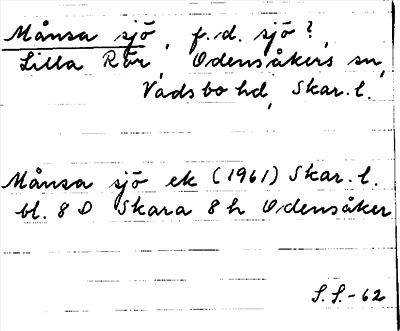 Månsa sjö, f.d. sjö?,
Lilla Rör, Odensåkers sn,
Vadsbo hd, Skar. l.
Månsa sjö ek (1961) Skar. l.
bl. 8 D Skara 8 h Odensåker
S.S.-62